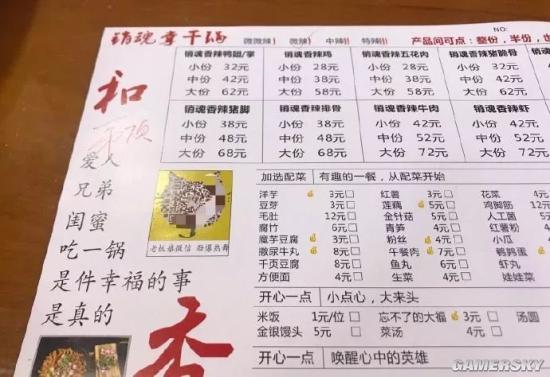 销魂香干锅 微微辣| 微辣| 中辣|| 特辣||| 产品间可点：整份，半份，
NO:
销魂香辣鸭翅/掌 销魂香辣鸡 销魂香辣五花肉 销魂香辣猪脆骨
小份 32元 小份 28元 小份 28元 小份 32元
中份 42元 中份 38元 中份 38元 中份 42元
大份 62元 大份 58元 大份 58元 大份 62元
销魂香辣猪脚 销魂香辣排骨 销魂香辣牛肉 销魂香辣虾
小份 38元 小份 38元 小份 42元 小份 42元
中份 48元 中份 48元 中份 52元 中份 52元
大份 68元 大份 68元 大份 72元 大份 72元
和
爱人
兄弟
闺蜜
吃一锅
是件幸福的事
是真的
香
老板娘微信 劲爆热舞
加选配菜 有趣的一餐，从配菜开始
洋芋 3元 红薯 3元 花菜 4元
豆芽 3元 莲藕 5元 鸡脚筋 12元
毛肚 12元 金针菇 5元 人工菌
腐竹 6元 青笋 4元 红薯粉
魔芋豆腐 3元 粉丝 4元 小瓜
撒尿牛丸 8元 午餐肉 7元 鹌鹑蛋
千页豆腐 8元 鱼丸 6元 虾丸
方便面 4元 生菜 4元 娃娃菜
开心一点 小点心，大来头
米饭 1元/位 忘不了的大福 3元 汤圆
金银馒头 5元 菜汤 4元
开心一点 唤醒心中的英雄
GAMERSKY